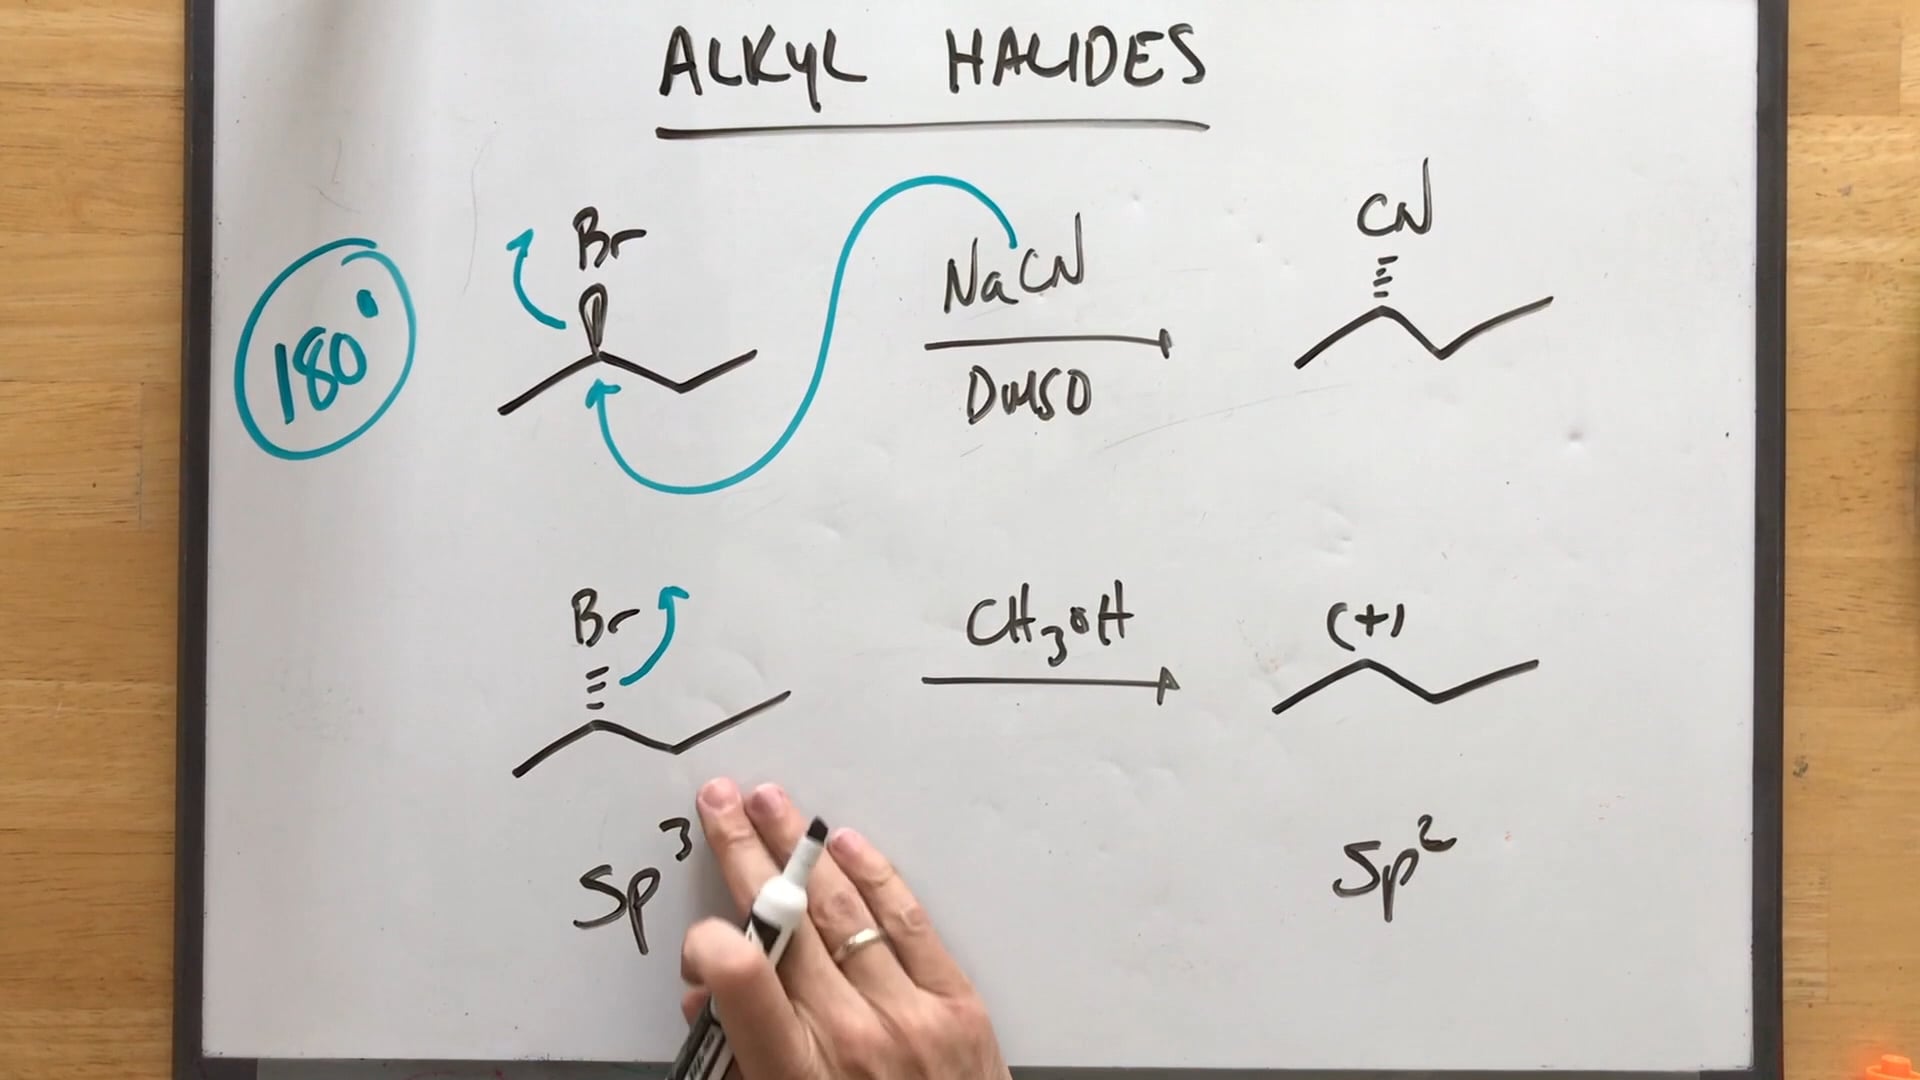 ALKYL HALIDES
Br
NaCN
DMSO
CN
180°
Br
CH₃OH
(+)
Sp³
Sp²